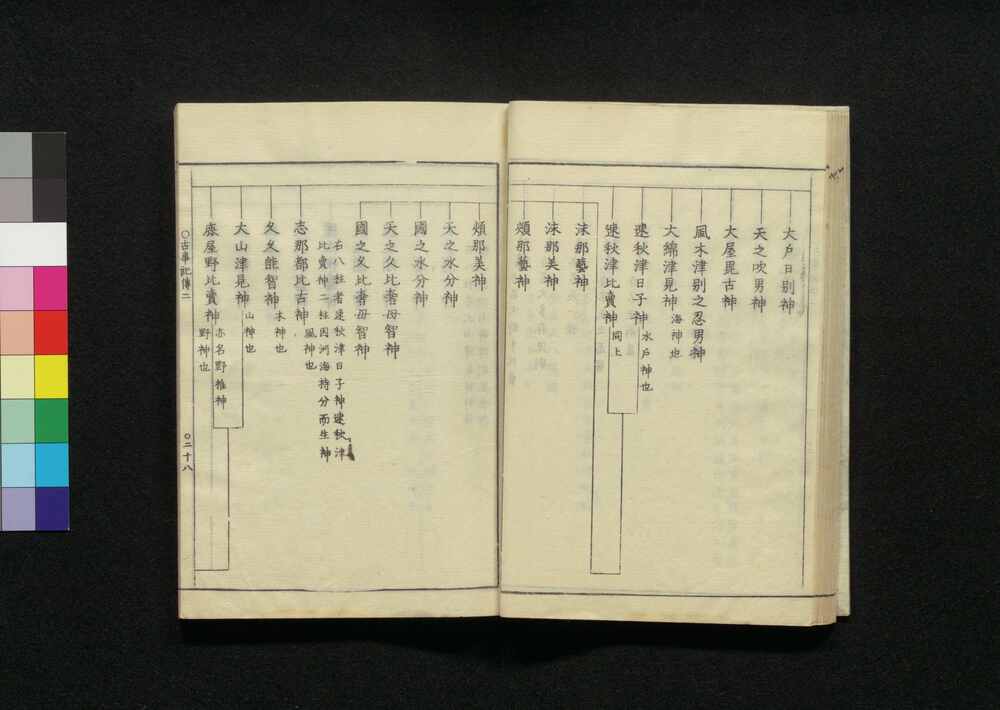 大戸日別神
天之吹男神
大屋毘古神
風木津別之忍男神
大綿津見神 海神也
速秋津日子神 水戸神也
速秋津比賣神 同上
沫那藝神
沫那美神
頰那藝神
頰那美神
天之水分神
國之水分神
天之久比奢母智神
國之久比奢母智神
右八柱者速秋津日子神速秋津
比賣神二柱因河海持分而生神
志那都比古神 風神也
久久能智神 木神也
大山津見神 山神也
鹿屋野比賣神 亦名野椎神
野神也
○古事記傳二
○二十八